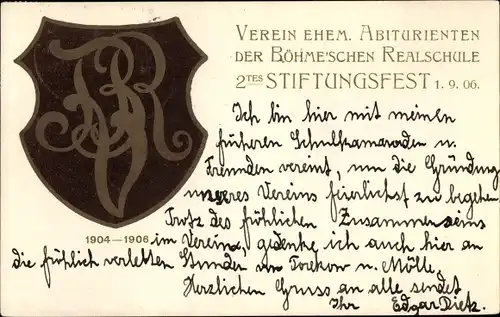 VEREIN EHEM. ABITURIENTEN
DER BÖHME'SCHEN REALSCHULE
2TES STIFTUNGSFEST 1.9.06.
Ich bin hier mit meinen
früheren Schulkamaraden u.
Freunden vereint, um die Gründung
unseres Vereins feierlichst zu begehen
Trotz des fröhlichen Zusammenseins
1904—1906
im Vereine, gedenke ich auch hier an
die fröhlich verlebten Stunden von Torekow u. Mölle,
Herzlichen Gruss an alle sendet
Ihr Edgar Dietz.